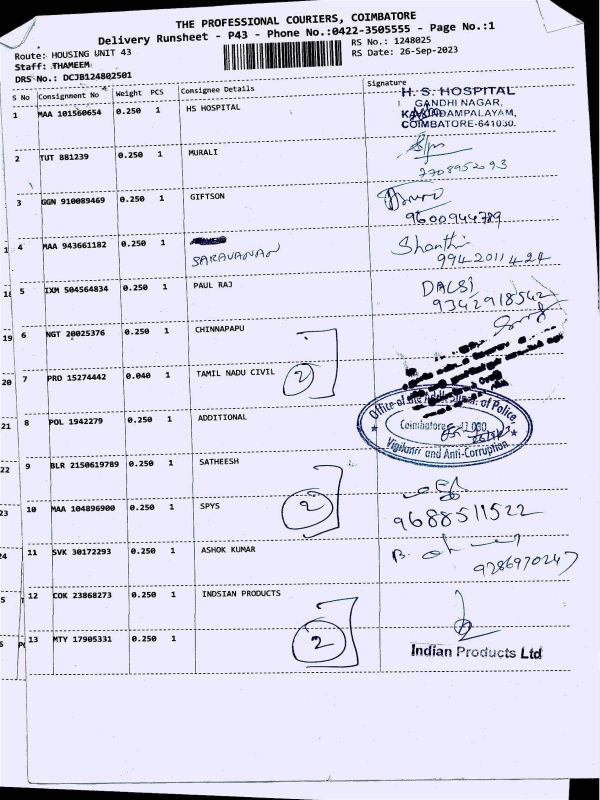 THE PROFESSIONAL COURIERS, COIMBATORE
Delivery Runsheet - P43 - Phone No.:0422-3505555 - Page No.:1
Route: HOUSING UNIT 43
RS No.: 1248025
Staff: THAMEEM
RS Date: 26-Sep-2023
DRS No.: DCJB124802501
S No Consignment No Weight PCS Consignee Details Signature
1 MAA 101560654 0.250 1 HS HOSPITAL
H. S. HOSPITAL
GANDHI NAGAR,
KAVUNDAMPALAYAM,
COIMBATORE-641030.
2 TUT 881239 0.250 1 MURALI
7708952093
3 GGN 910089469 0.250 1 GIFTSON
9600944789
1 4 MAA 943661182 0.250 1
SARAVANAN
Shanthi
9942011424
18 5 IXM 504564834 0.250 1 PAUL RAJ
DALSI
9342918542
19 6 NGT 20025376 0.250 1 CHINNAPAPU
20 7 PRO 15274442 0.040 1 TAMIL NADU CIVIL
2
21 8 POL 1942279 0.250 1 ADDITIONAL
Office of the Addl. Supdt. of Police,
Coimbatore
Vigilance and Anti-Corruption
22 9 BLR 2150619789 0.250 1 SATHEESH
23 10 MAA 104896900 0.250 1 SPYS
2
9688511522
24 11 SVK 30172293 0.250 1 ASHOK KUMAR
B.
9286970247
5 12 COK 23868273 0.250 1 INDSIAN PRODUCTS
13 MTY 17905331 0.250 1
2
Indian Products Ltd